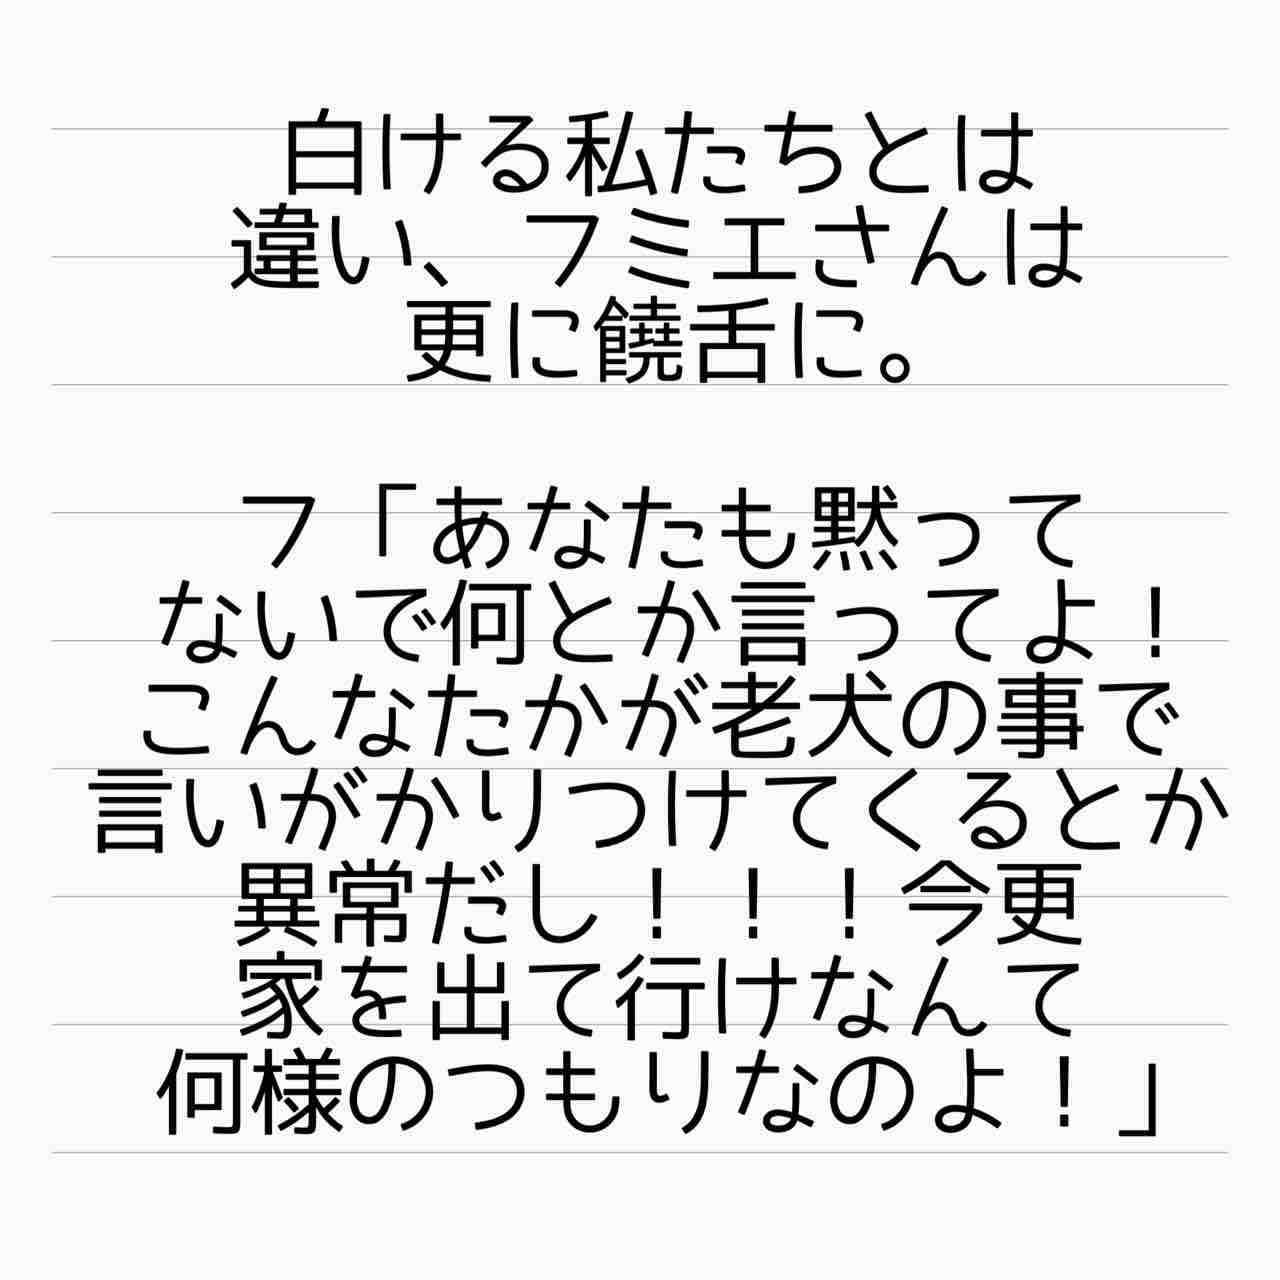 白ける私たちとは
違い、フミエさんは
更に饒舌に。
フ「あなたも黙って
ないで何とか言ってよ！
こんなたかが老犬の事で
言いがかりつけてくるとか
異常だし！！！今更
家を出て行けなんて
何様のつもりなのよ！」